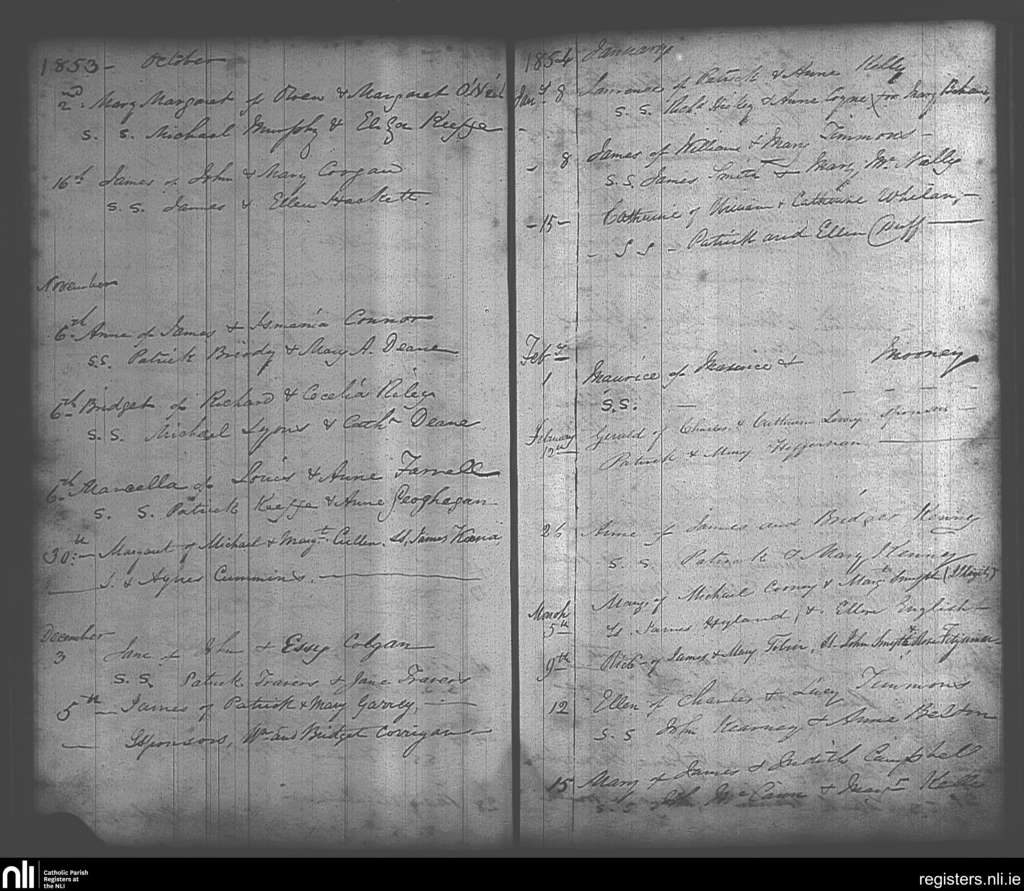 1853 - October
2nd Mary Margaret of Owen & Margaret O'Neil
S. S. Michael Murphy & Eliza Keeffe
16th James of John & Mary Corgan
S. S. James & Ellen Hackett.
November
6th Anne of James & Ismania Connor
S.S. Patrick Brody & Mary A. Deane
6th Bridget of Richard & Cecelia Riley
S. S. Michael Lyons & Cathn Deane
6th Marcella of Louis & Anne Farrell
S. S. Patrick Keeffe & Anne Geoghegan
30th - Margaret of Michael & Margt Cullen. Ss, James
& Agnes Cummins.
December
3 Jane of John & Essy Colgan
S. S. Patrick Travers & Jane Travers
5th - James of Patrick & Mary Garvey.
Sponsors, Wm and Bridget Corrigan
1854 January
Jany 8 Laurence of Patrick & Anne Kelly
S. S. & Anne Coyne for Mary
- 8 James of William & Mary Timmons -
S.S. James Smith & Mary McNally
- 15 - Catherine of & Catherine Whelan -
- S S - Patrick and Ellen Duff
Feby
1 Maurice of Maurice & Mooney
S.S. -
February 12th Gerald of Charles & sponsors -
Patrick & Mary Heffernan
26 Anne of James and Bridget Kenny
S. S. Patrick & Mary Kenney
March 5th Mary of Michael & Margt Smyth
Ss James Hyland, & Ellen English -
9th of James & Mary Tobin. Ss. John Smyth &
12 Ellen of Charles & Lucy Timmons
S. S John Kearney & Anne Belton
15 Mary of James & Judith Campbell
John & Margt
nli
Catholic Parish
Registers at
the NLI
registers.nli.ie